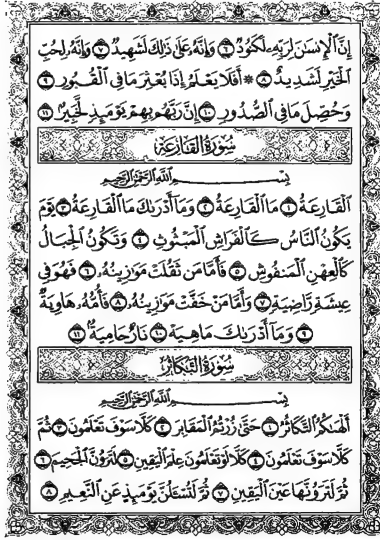 إِنَّ ٱلْإِنسَٰنَ لِرَبِّهِۦ لَكَنُودٌ ۝٦ وَإِنَّهُۥ عَلَىٰ ذَٰلِكَ لَشَهِيدٌ ۝٧ وَإِنَّهُۥ لِحُبِّ
ٱلْخَيْرِ لَشَدِيدٌ ۝٨ ۞ أَفَلَا يَعْلَمُ إِذَا بُعْثِرَ مَا فِى ٱلْقُبُورِ ۝٩
وَحُصِّلَ مَا فِى ٱلصُّدُورِ ۝١٠ إِنَّ رَبَّهُم بِهِمْ يَوْمَئِذٍ لَّخَبِيرٌۢ ۝١١
سُورَةُ القَارِعَةِ
بِسْمِ ٱللَّهِ ٱلرَّحْمَٰنِ ٱلرَّحِيمِ
ٱلْقَارِعَةُ ۝١ مَا ٱلْقَارِعَةُ ۝٢ وَمَآ أَدْرَىٰكَ مَا ٱلْقَارِعَةُ ۝٣ يَوْمَ
يَكُونُ ٱلنَّاسُ كَٱلْفَرَاشِ ٱلْمَبْثُوثِ ۝٤ وَتَكُونُ ٱلْجِبَالُ
كَٱلْعِهْنِ ٱلْمَنفُوشِ ۝٥ فَأَمَّا مَن ثَقُلَتْ مَوَٰزِينُهُۥ ۝٦ فَهُوَ فِى
عِيشَةٍ رَّاضِيَةٍ ۝٧ وَأَمَّا مَنْ خَفَّتْ مَوَٰزِينُهُۥ ۝٨ فَأُمُّهُۥ هَاوِيَةٌ
۝٩ وَمَآ أَدْرَىٰكَ مَا هِيَهْ ۝١٠ نَارٌ حَامِيَةٌۢ ۝١١
سُورَةُ التَّكَاثُرِ
بِسْمِ ٱللَّهِ ٱلرَّحْمَٰنِ ٱلرَّحِيمِ
أَلْهَىٰكُمُ ٱلتَّكَاثُرُ ۝١ حَتَّىٰ زُرْتُمُ ٱلْمَقَابِرَ ۝٢ كَلَّا سَوْفَ تَعْلَمُونَ ۝٣ ثُمَّ
كَلَّا سَوْفَ تَعْلَمُونَ ۝٤ كَلَّا لَوْ تَعْلَمُونَ عِلْمَ ٱلْيَقِينِ ۝٥ لَتَرَوُنَّ ٱلْجَحِيمَ ۝٦
ثُمَّ لَتَرَوُنَّهَا عَيْنَ ٱلْيَقِينِ ۝٧ ثُمَّ لَتُسْـَٔلُنَّ يَوْمَئِذٍ عَنِ ٱلنَّعِيمِ ۝٨